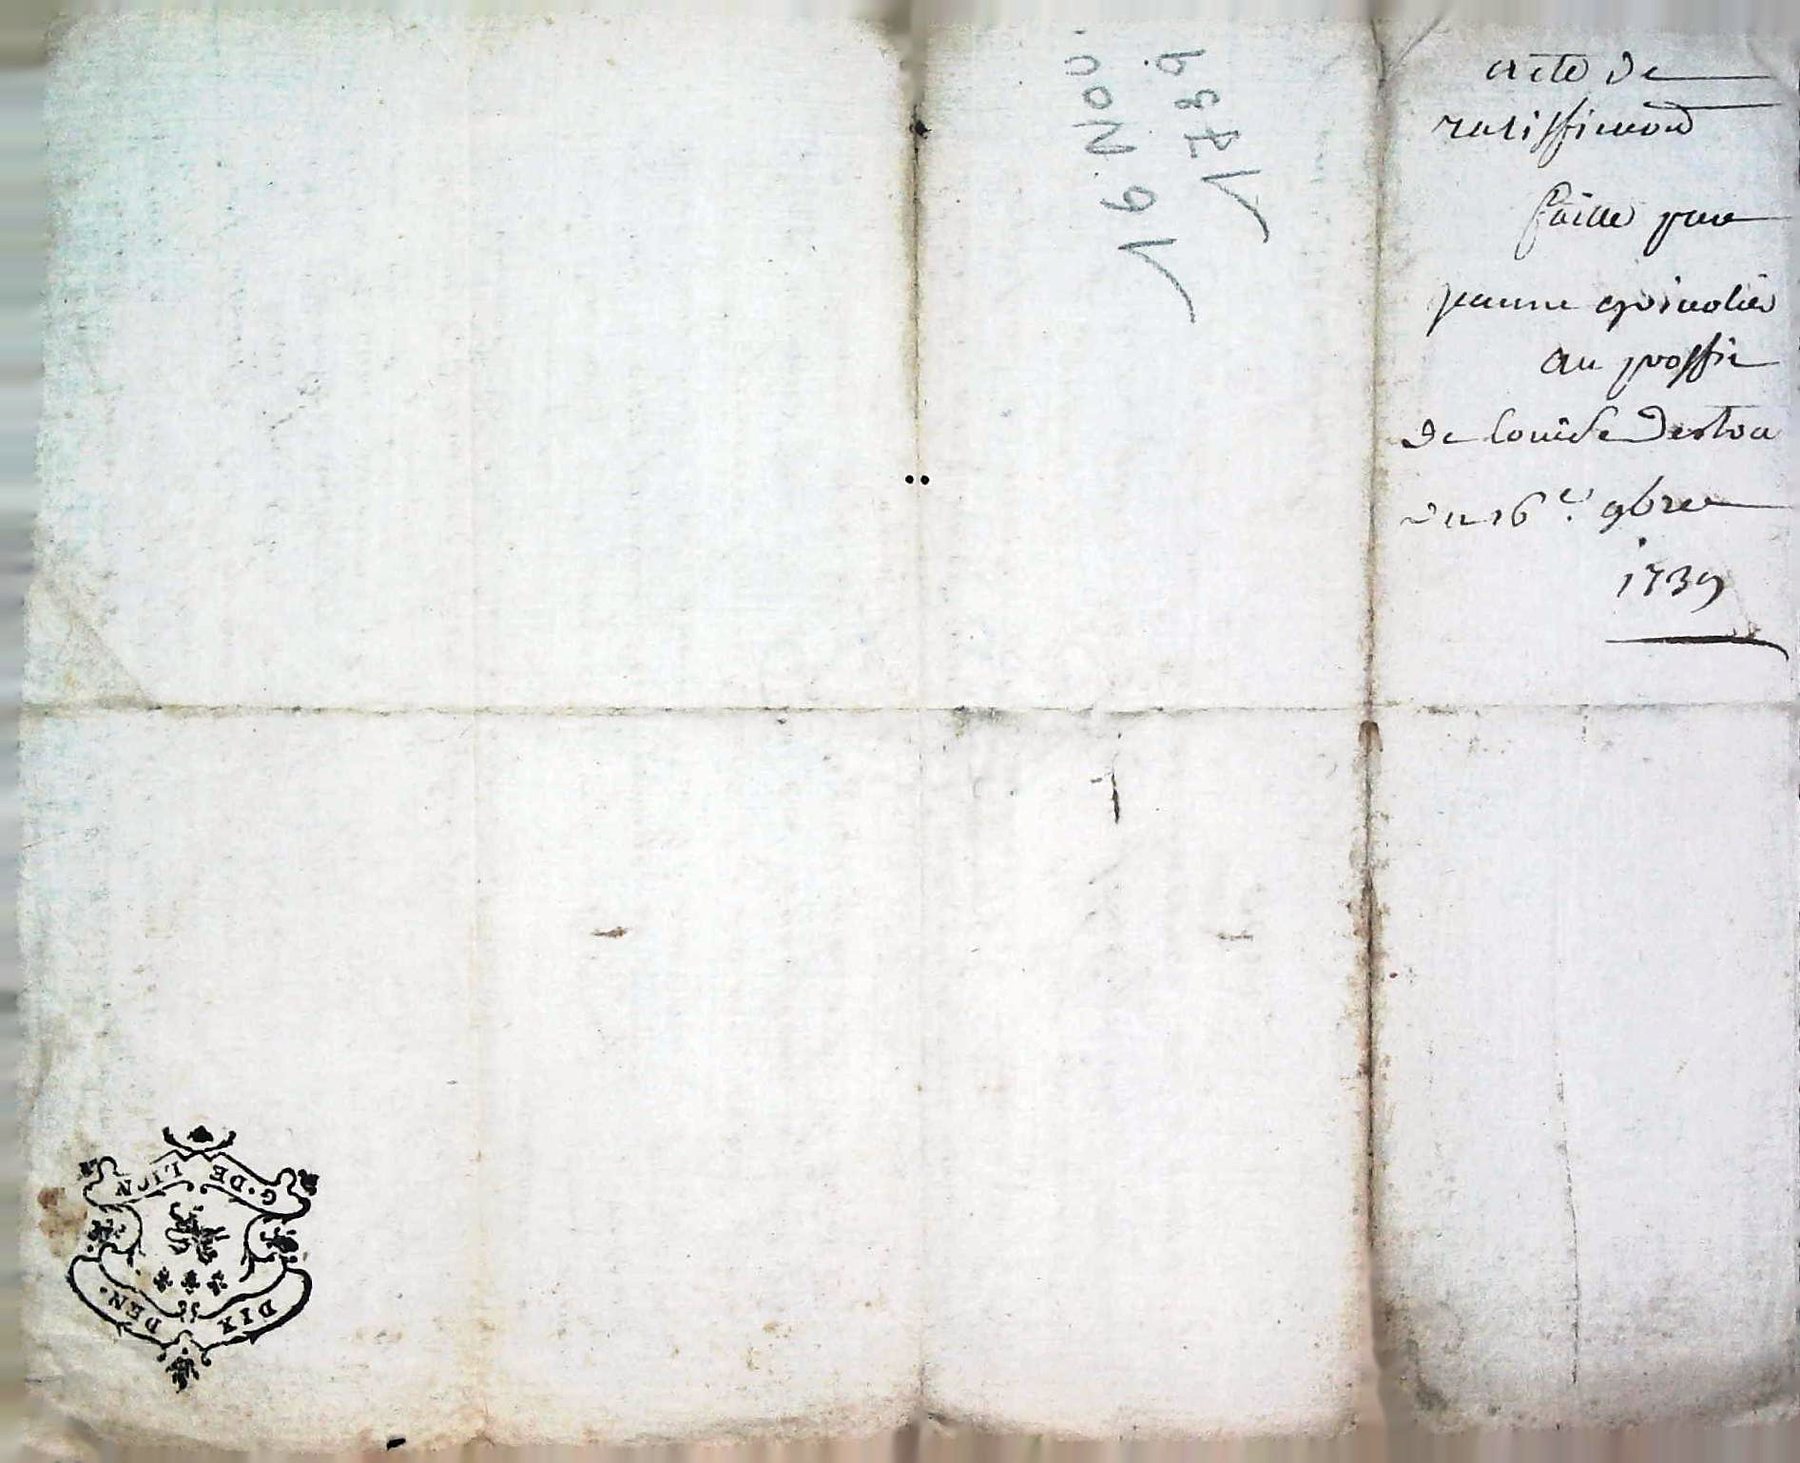 acte de
ratiffication
faitte par
jeanne
au proffit
de louise
du 16e. 9bre
1739
16 Nov.
1739
G. DE LION
DIX DEN.